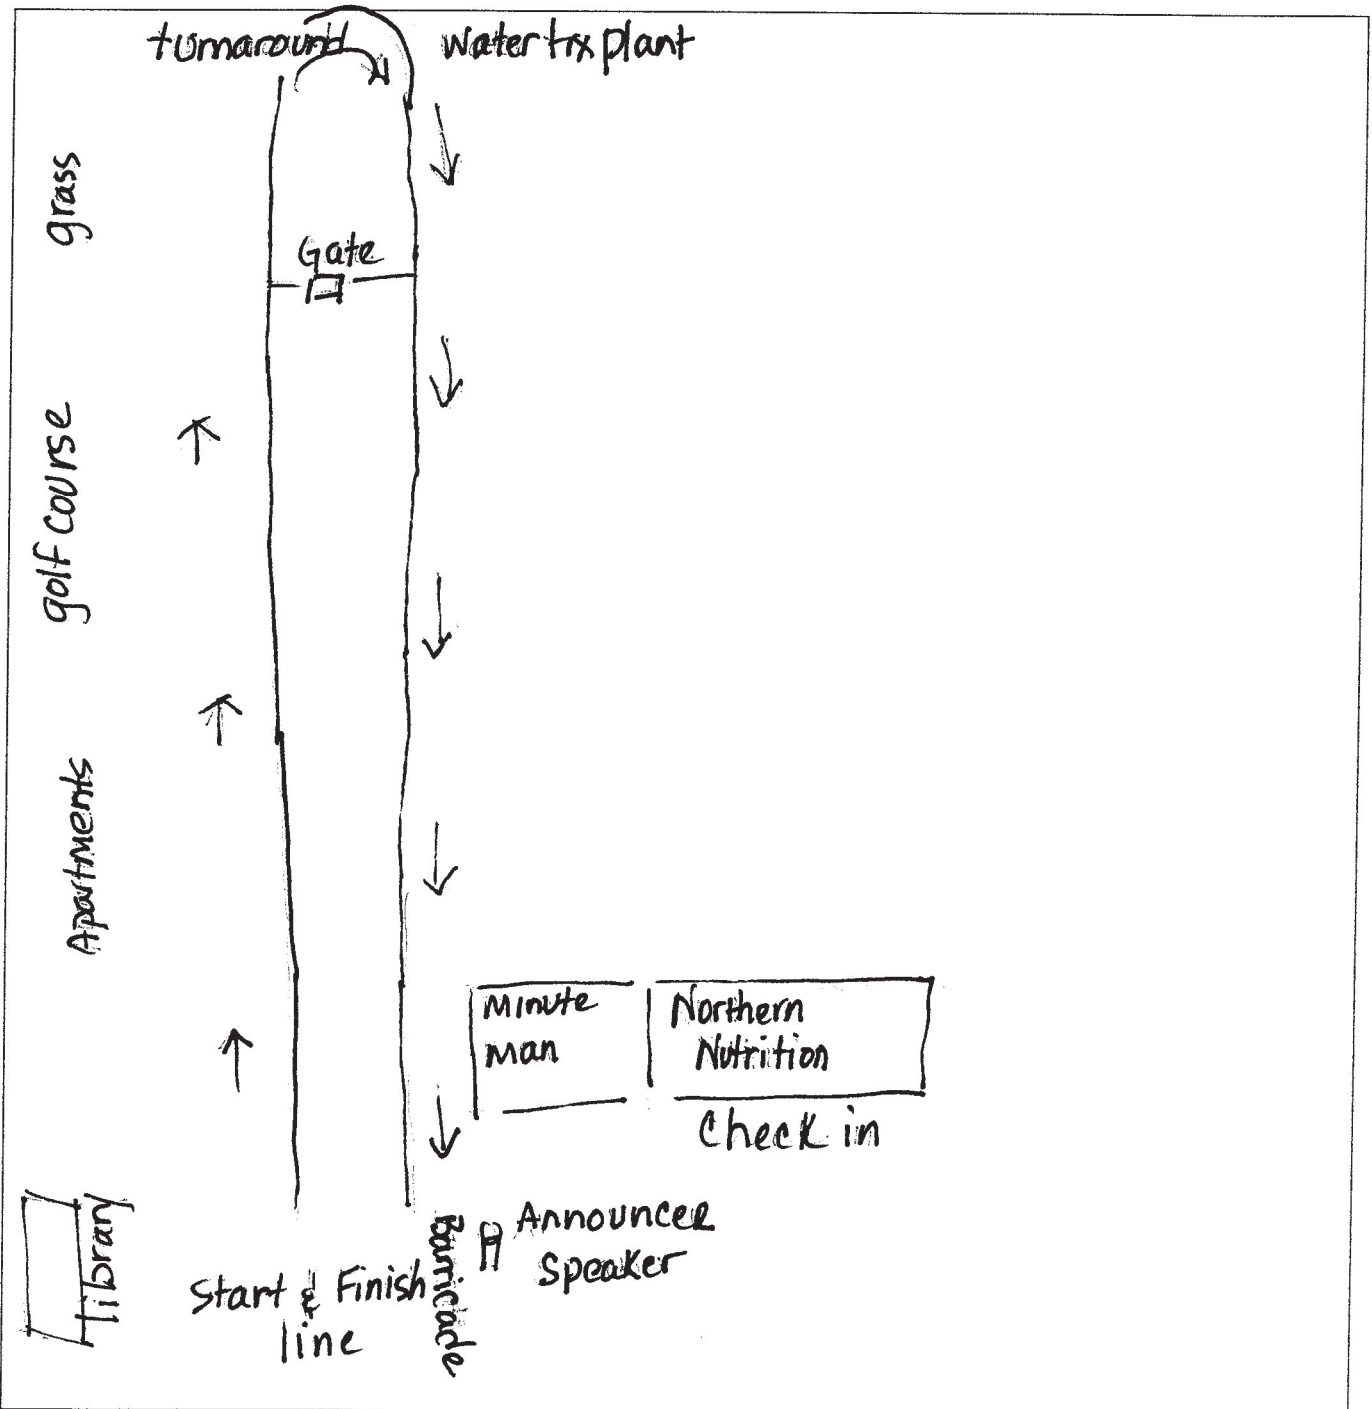 turnaround
Water trx plant
grass
Gate
golf course
Apartments
Minute
Man
Northern
Nutrition
Check in
Library
Start & Finish
line
Barricade
Announcer
Speaker